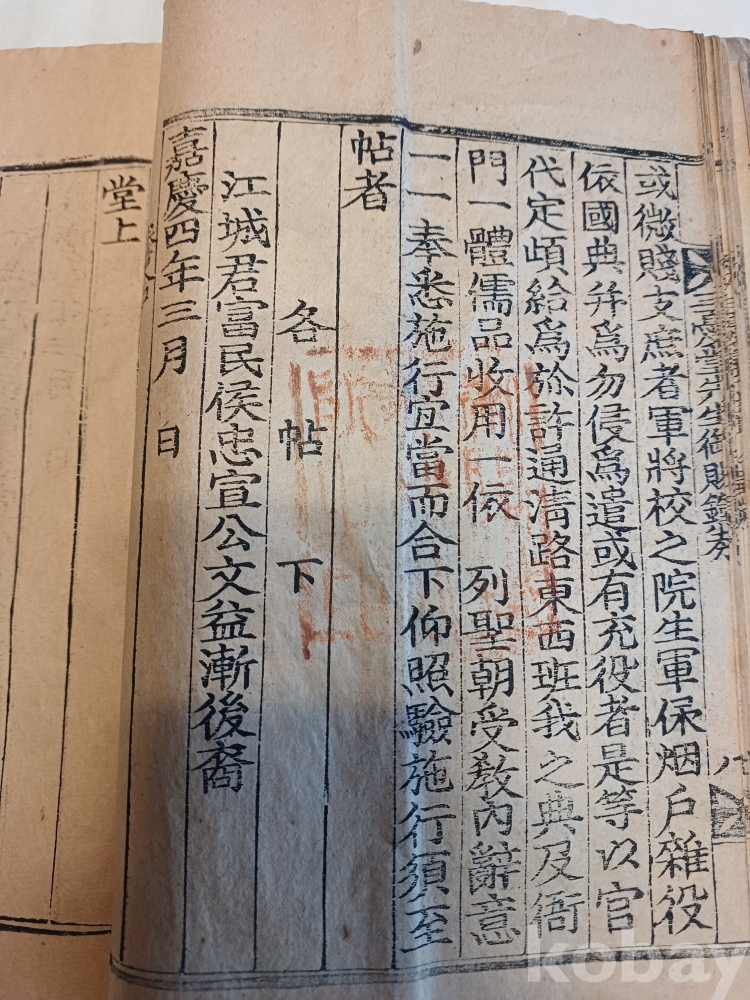 或微賤支庶者軍將校之院生軍保烟戶雜役
依國典并爲勿侵爲遣或有充役者是等以官
代定頉給爲旀許通淸路東西班我之典及衙
門一體儒品收用一依 列聖朝受敎內辭意
一一奉悉施行宜當而合下仰照驗施行須至
帖者
各 帖 下
江城君富民侯忠宣公文益漸後裔
嘉慶四年三月 日
堂上
kobay